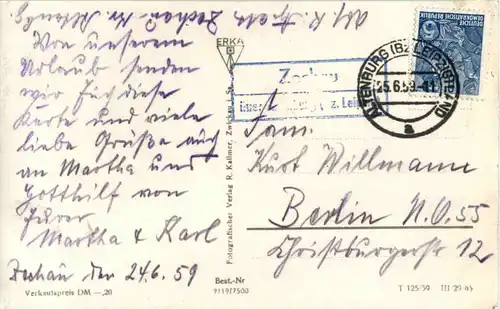 Von unserem
Urlaub senden
wir für diese
Karte und viele
liebe Grüße auch
an Martha und
Gotthilf von
Eurer
Martha & Karl
Zechau den 24.6.59
Verkaufspreis DM —,20
ERKA
Fotografischer Verlag R. Kallmer, Zwickau
Best.-Nr
9119/7500
Zechau
DEUTSCHE
DEMOKRATISCHE REPUBLIK
ALTENBURG (Bz LEIPZIG) LAND
25.6.59
a
Fam.
Kurt Willmann
Berlin N.O. 55
Christburgerstr 12
T 125/59 III 29